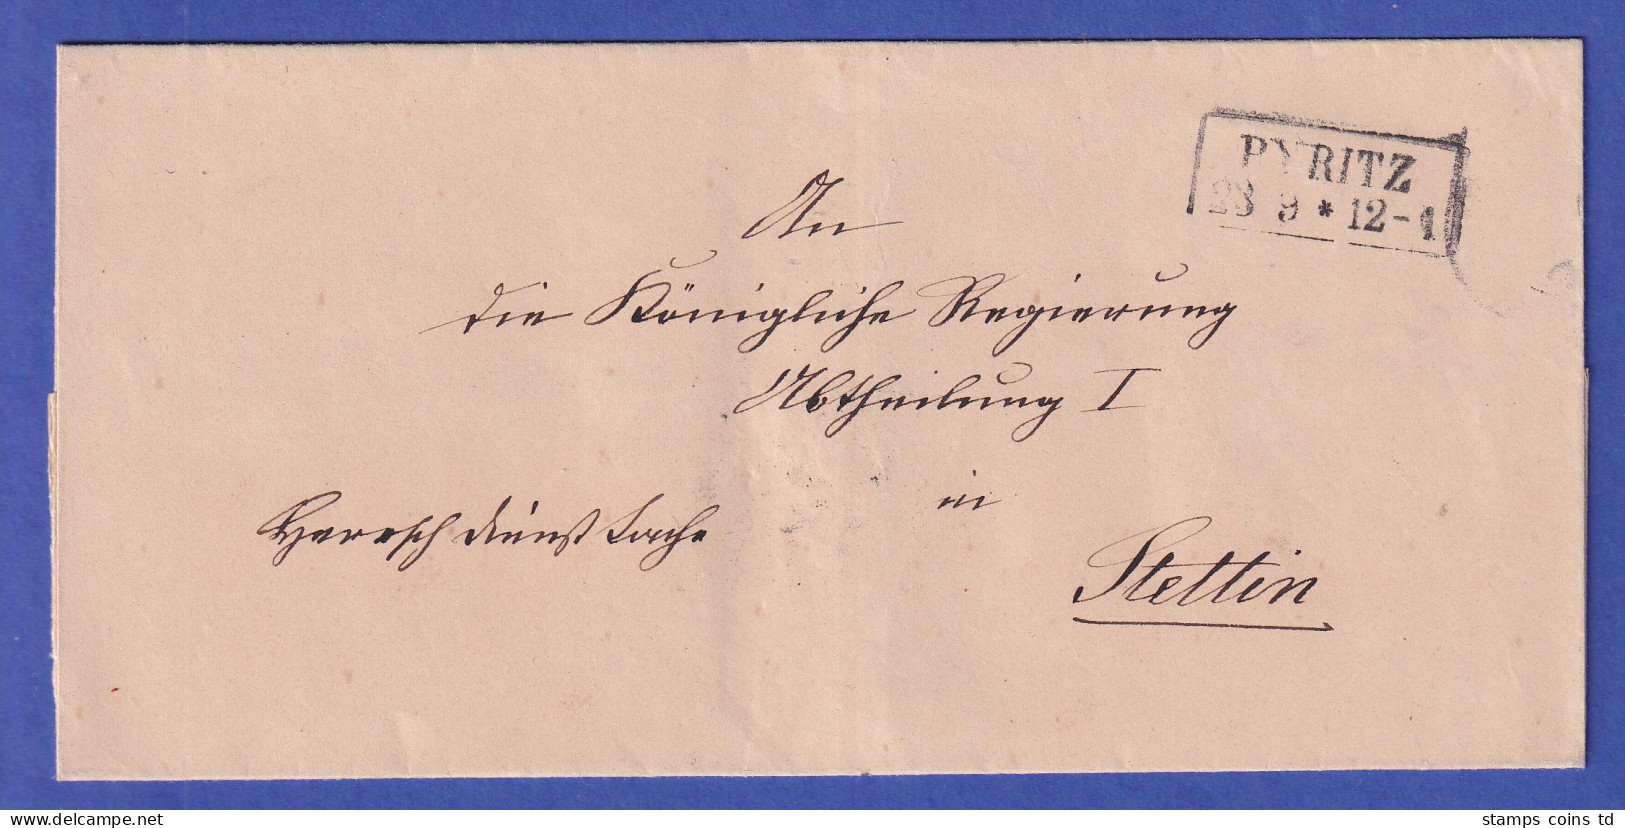 PYRITZ
23 9 * 12-1
An
die Königliche Regierung
Abtheilung I
in
Herrsch Dienst Sache
Stettin
stamps coins td